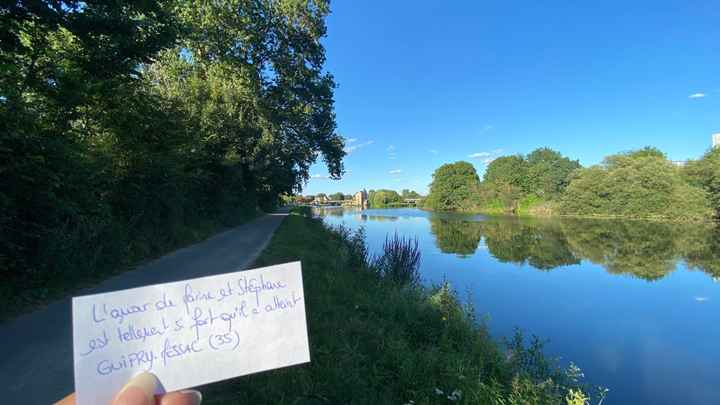 L'amour de Carine et Stéphane
est tellement si fort qu'il a atteint
GUIPRY-MESSAC (35)